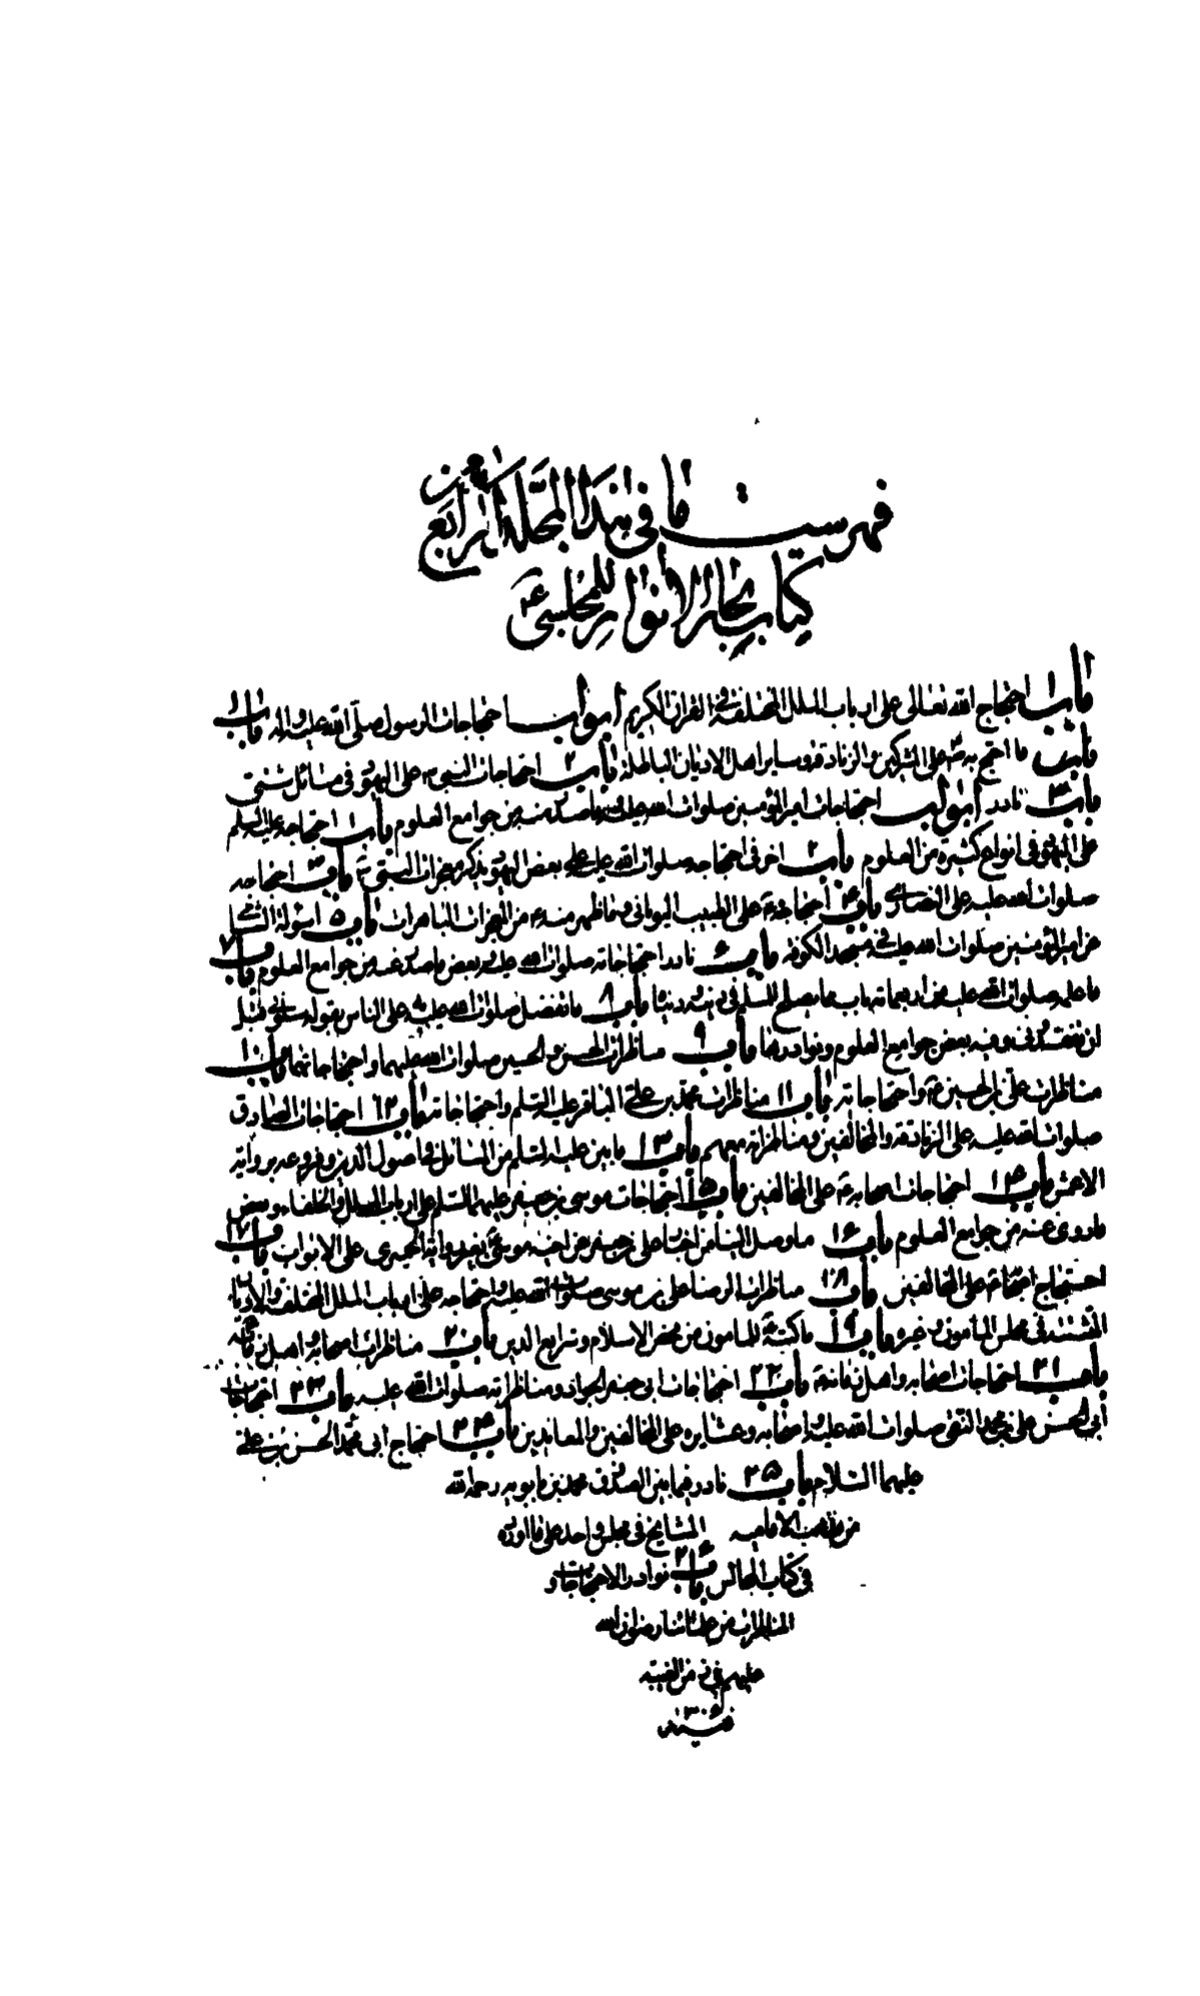 فهرست ما في هذا المجلد الرابع من
كتاب بحار الأنوار للمجلسي ع
باب ١ احتجاج الله تعالى على ارباب الملل المختلفة في القران الكريم ابواب احتجاجات الرسول صلى الله عليه واله باب ١
ما احتج به ص على المشركين والزنادقة وساير اهل الاديان الباطلة باب ٢ احتجاجات النبي ص على اليهود في مسائل شتى
باب ٣ نادر ابواب احتجاجات امير المؤمنين صلوات الله عليه وما صدر منه من جوامع العلوم باب ١ احتجاجه عليه السلم
على اليهود في انواع كثيرة من العلوم باب ٢ اخر في احتجاجه صلوات الله عليه على بعض اليهود بذكر معجزات النبي ص باب ٣ احتجاجه
صلوات الله عليه على النصارى باب ٤ احتجاجه ع على الطبيب اليوناني وما ظهر منه ع من المعجزات الباهرات باب ٥ اسولة الشامي
عن امير المؤمنين صلوات الله عليه في مسجد الكوفة باب ٦ نادر احتجاجاته صلوات الله عليه وبعض ما صدر عنه من جوامع العلوم باب ٧
ما علمه صلوات الله عليه من اربعمائة باب مما يصلح للمسلم في دينه ودنياه باب ٨ ما تفضل صلوات الله عليه به على الناس بقوله سلوني قبل
ان تفقدوني وفيه بعض جوامع العلوم ونوادرها باب ٩ مناظرات الحسن والحسين صلوات الله عليهما واحتجاجاتهما باب ١٠
مناظرات علي بن الحسين ع واحتجاجاته باب ١١ مناظرات محمد بن علي الباقر عليه السلم واحتجاجاته باب ١٢ احتجاجات الصادق
صلوات الله عليه على الزنادقة والمخالفين ومناظراته معهم باب ١٣ ما بين عليه السلم من المسائل في اصول الدين وفروعه برواية
الاعمش باب ١٤ احتجاجات اصحابه ع على المخالفين باب ١٥ احتجاجات موسى بن جعفر عليهما السلم على ارباب الملل والخلفاء وبعض
ما روي عنه من جوامع العلوم باب ١٦ ما وصل الينا من اخبار علي بن جعفر عن اخيه موسى ع بغير رواية الحميري على الابواب باب ١٧
احتجاج اصحابه على المخالفين باب ١٨ مناظرات الرضا علي بن موسى صلوات الله عليه واحتجاجه على ارباب الملل المختلفة والاديان
المتشتتة في مجلس المأمون وغيره باب ١٩ ما كتبه ع للمأمون من محض الاسلام وشرايع الدين باب ٢٠ مناظرات اصحابه واهل زمانه
باب ٢١ احتجاجات اصحابه واهل زمانه ع باب ٢٢ احتجاجات ابي جعفر الجواد ومناظراته صلوات الله عليه باب ٢٣ احتجاجات
أبي الحسن علي بن محمد النقي صلوات الله عليه واصحابه وعشايره على المخالفين والمعاندين باب ٢٤ احتجاج ابي محمد الحسن بن علي
عليهما السلام باب ٢٥ نادر فيما بين الصدوق محمد بن بابويه رحمه الله
من مذهب الامامية المشايخ في مجلس واحد على ما اورده
في كتاب المجالس باب ٢٦ نوادر الاحتجاجات و
المناظرات من علمائنا رضوان الله
عليهم في زمن الغيبة